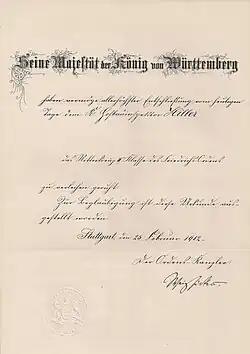 Seine Majestät der König von Württemberg
haben vermöge allerhöchster Entschließung vom heutigen
Tage dem K. Hofbauinspektor Hiller
das Ritterkreuz Klasse des Friedrichs Ordens
zu verleihen geruht.
Zur Beglaubigung ist diese Urkunde aus-
gestellt worden.
Stuttgart, den 25. Februar 1912.
Der Ordens Kanzler